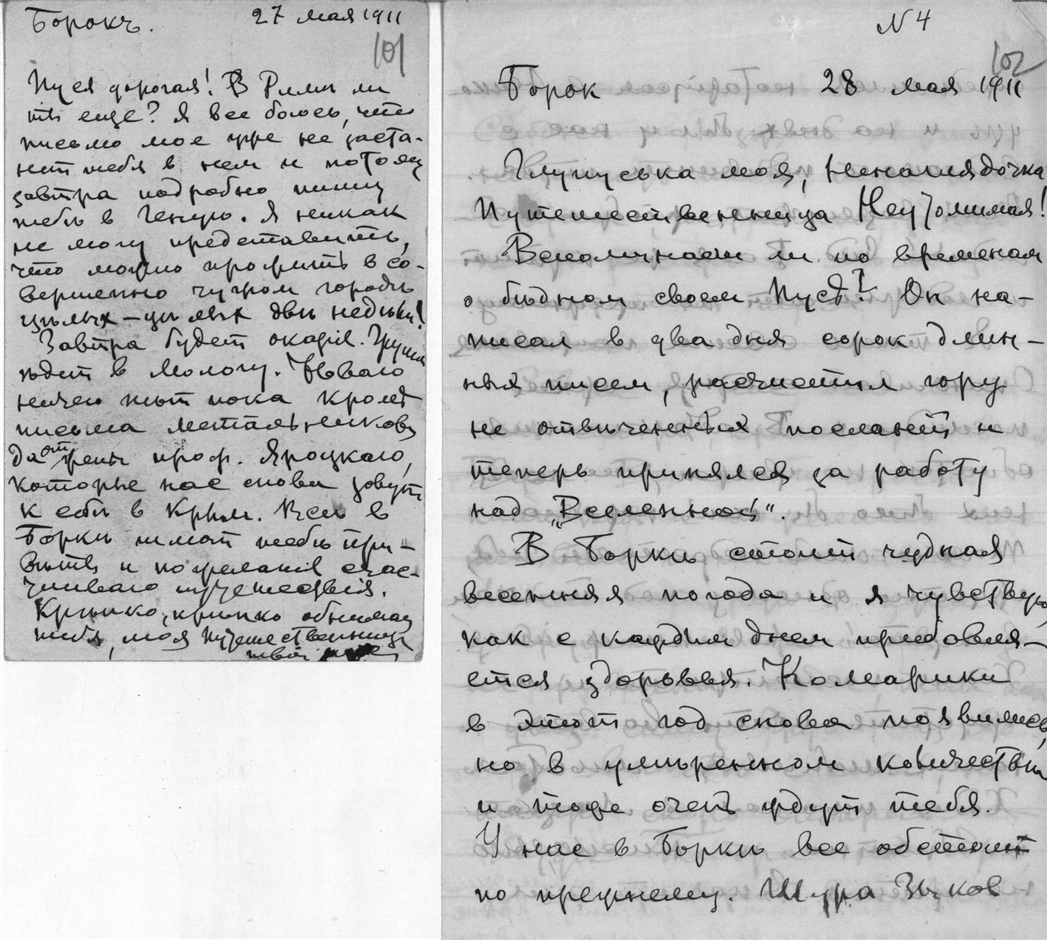 Борокъ.
27 мая 1911
101
Пуся дорогая! В Риме ли
ты еще? Я все боюсь, что
письмо мое уже не заста-
нет тебя в нем и потому
завтра подробно пишу
тебе в Геную. Я никак
не могу представить,
что можно прожить в со-
вершенно чужом городѣ
цѣлых-цѣлых двѣ недѣли!
Завтра будет оказiя. Груша
ѣдет в Мологу. Новаго
ничего нѣт пока кромѣ
письма
да от проф. Яроцкаго,
которые нас снова зовут
к себѣ в Крым. Всѣ в
Боркѣ шлют тебѣ при-
вѣты и пожеланiя счас-
тливаго путешествiя.
Крѣпко, крѣпко обнимаю
тебя, моя путешественница
твой
N 4
102
Борок 28 мая 1911
Глупуська моя, Ненаглядочка
Путешественница Неутомимая!
Вспоминаеш ли по временам
о бѣдном своем Пусѣ? Он на-
писал в два дня сорок длин-
ных писем, расчистил гору
не отвѣченных посланiй и
теперь принялся за работу
над „Вселенной“.
В Боркѣ стоит чудная
весенняя погода и я чувствую,
как с каждым днем прибавля-
ется здоровья. Комарики
в этот год снова появились,
но в умѣренном количествѣ
и тоже очень ждут тебя.
У нас в Боркѣ все обстоит
по прежнему. Шура Зыков